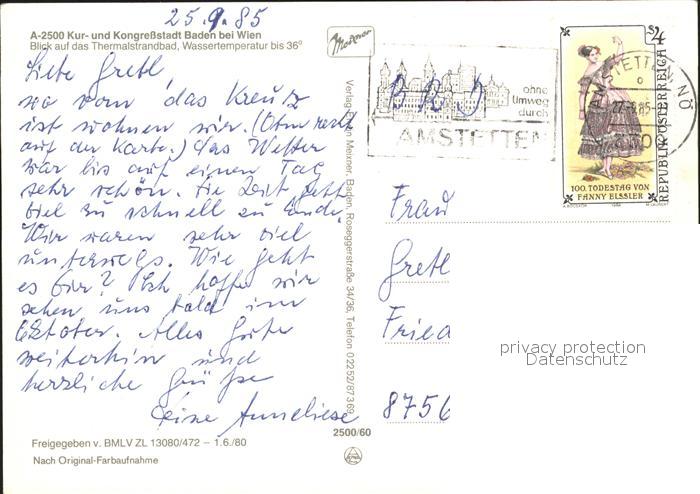 25.9.85
A-2500 Kur- und Kongreßstadt Baden bei Wien
Blick auf das Thermalstrandbad, Wassertemperatur bis 36°
Liebe Gretl,
wo vorn das Kreutz
ist wohnen wir. (Oben rechts
auf der Karte.) Das Wetter
war bis auf einen Tag
sehr schön. Die Zeit geht
viel zu schnell zu Ende.
Wir waren sehr viel
unterwegs. Wie geht
es Dir? Ich hoffe wir
sehen uns bald im
Oktober. Alles Gute
weiterhin und
herzliche Grüße
Deine Anneliese
Freigegeben v. BMLV ZL 13080/472 – 1.6./80
Nach Original-Farbaufnahme
Meixner
Verlag Foto Meixner, Baden, Roseggerstraße 34/36, Telefon 02252/87369
2500/60
ohne
Umweg
durch
AMSTETTEN
AMSTETTEN NÖ
S 4
REPUBLIK ÖSTERREICH
100. TODESTAG VON
FANNY ELSSLER
Frau
Gretl
Fried
8756
privacy protection
Datenschutz